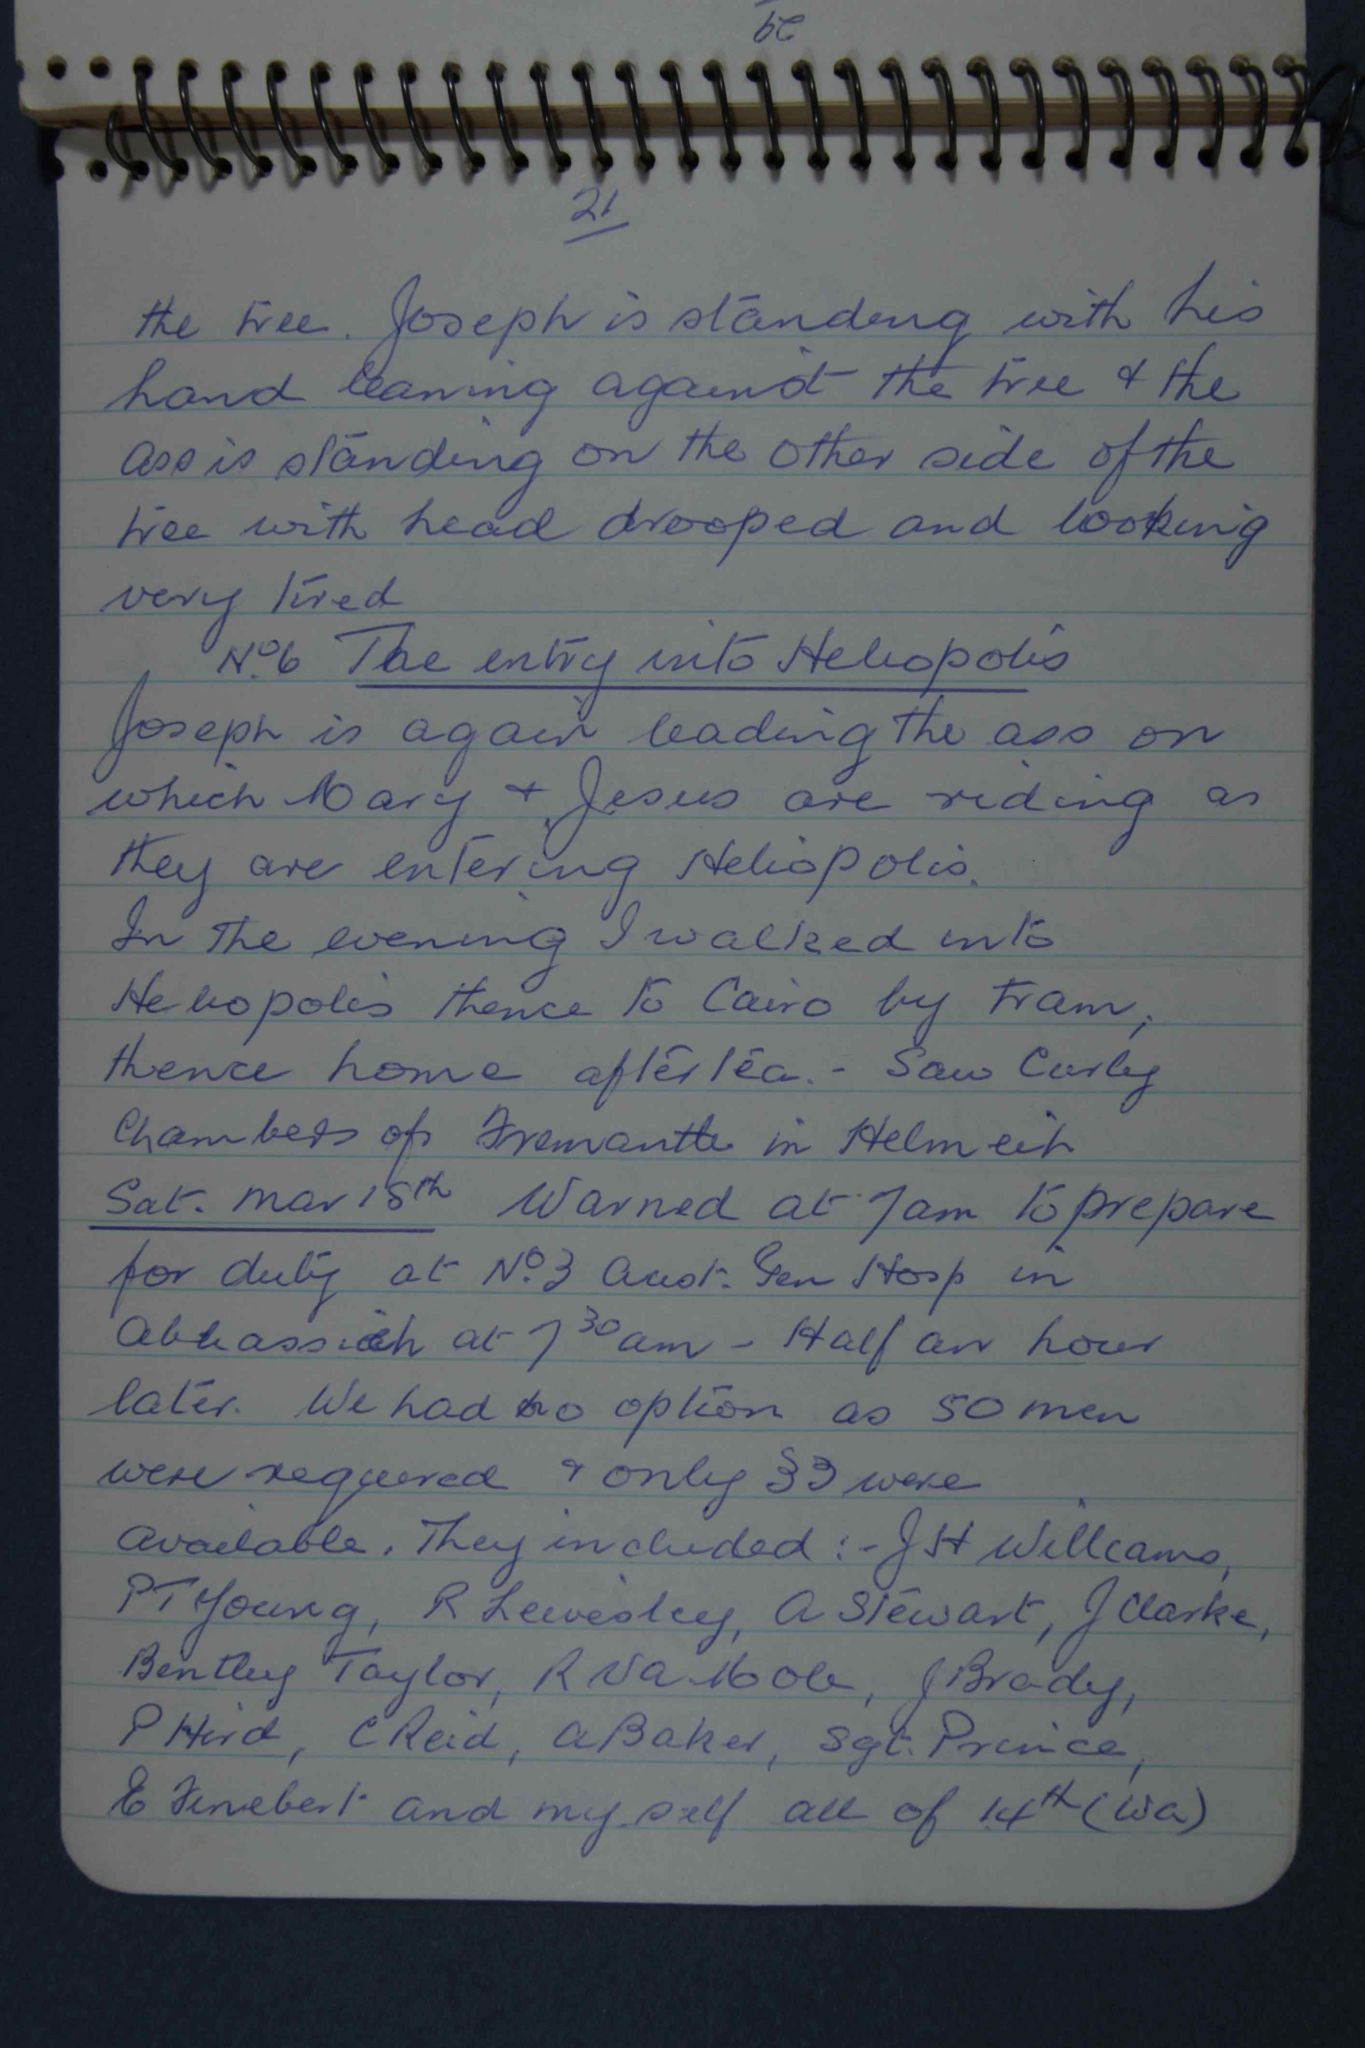 21
the tree. Joseph is standing with his
hand leaning against the tree & the
ass is standing on the other side of the
tree with head drooped and looking
very tired
No. 6 The entry into Heliopolis
Joseph is again leading the ass on
which Mary & Jesus are riding as
they are entering Heliopolis.
In the evening I walked into
Heliopolis thence to Cairo by tram,
thence home after tea. - Saw Curly
Chambers of Fremantle in Helmeih
Sat. Mar 18th Warned at 7am to prepare
for duty at No. 3 Aust. Gen Hosp in
Abbassieh at 7 30 am - Half an hour
later. We had no option as 50 men
were required & only 33 were
available. They included :- J H Williams,
P T Young, R Lewisley, A Stewart, J Clarke,
Bentley Taylor, R V A Mole, J Brady,
P Hird, C Reid, A Baker, Sgt. Prince,
E and myself all of 14th (WA)